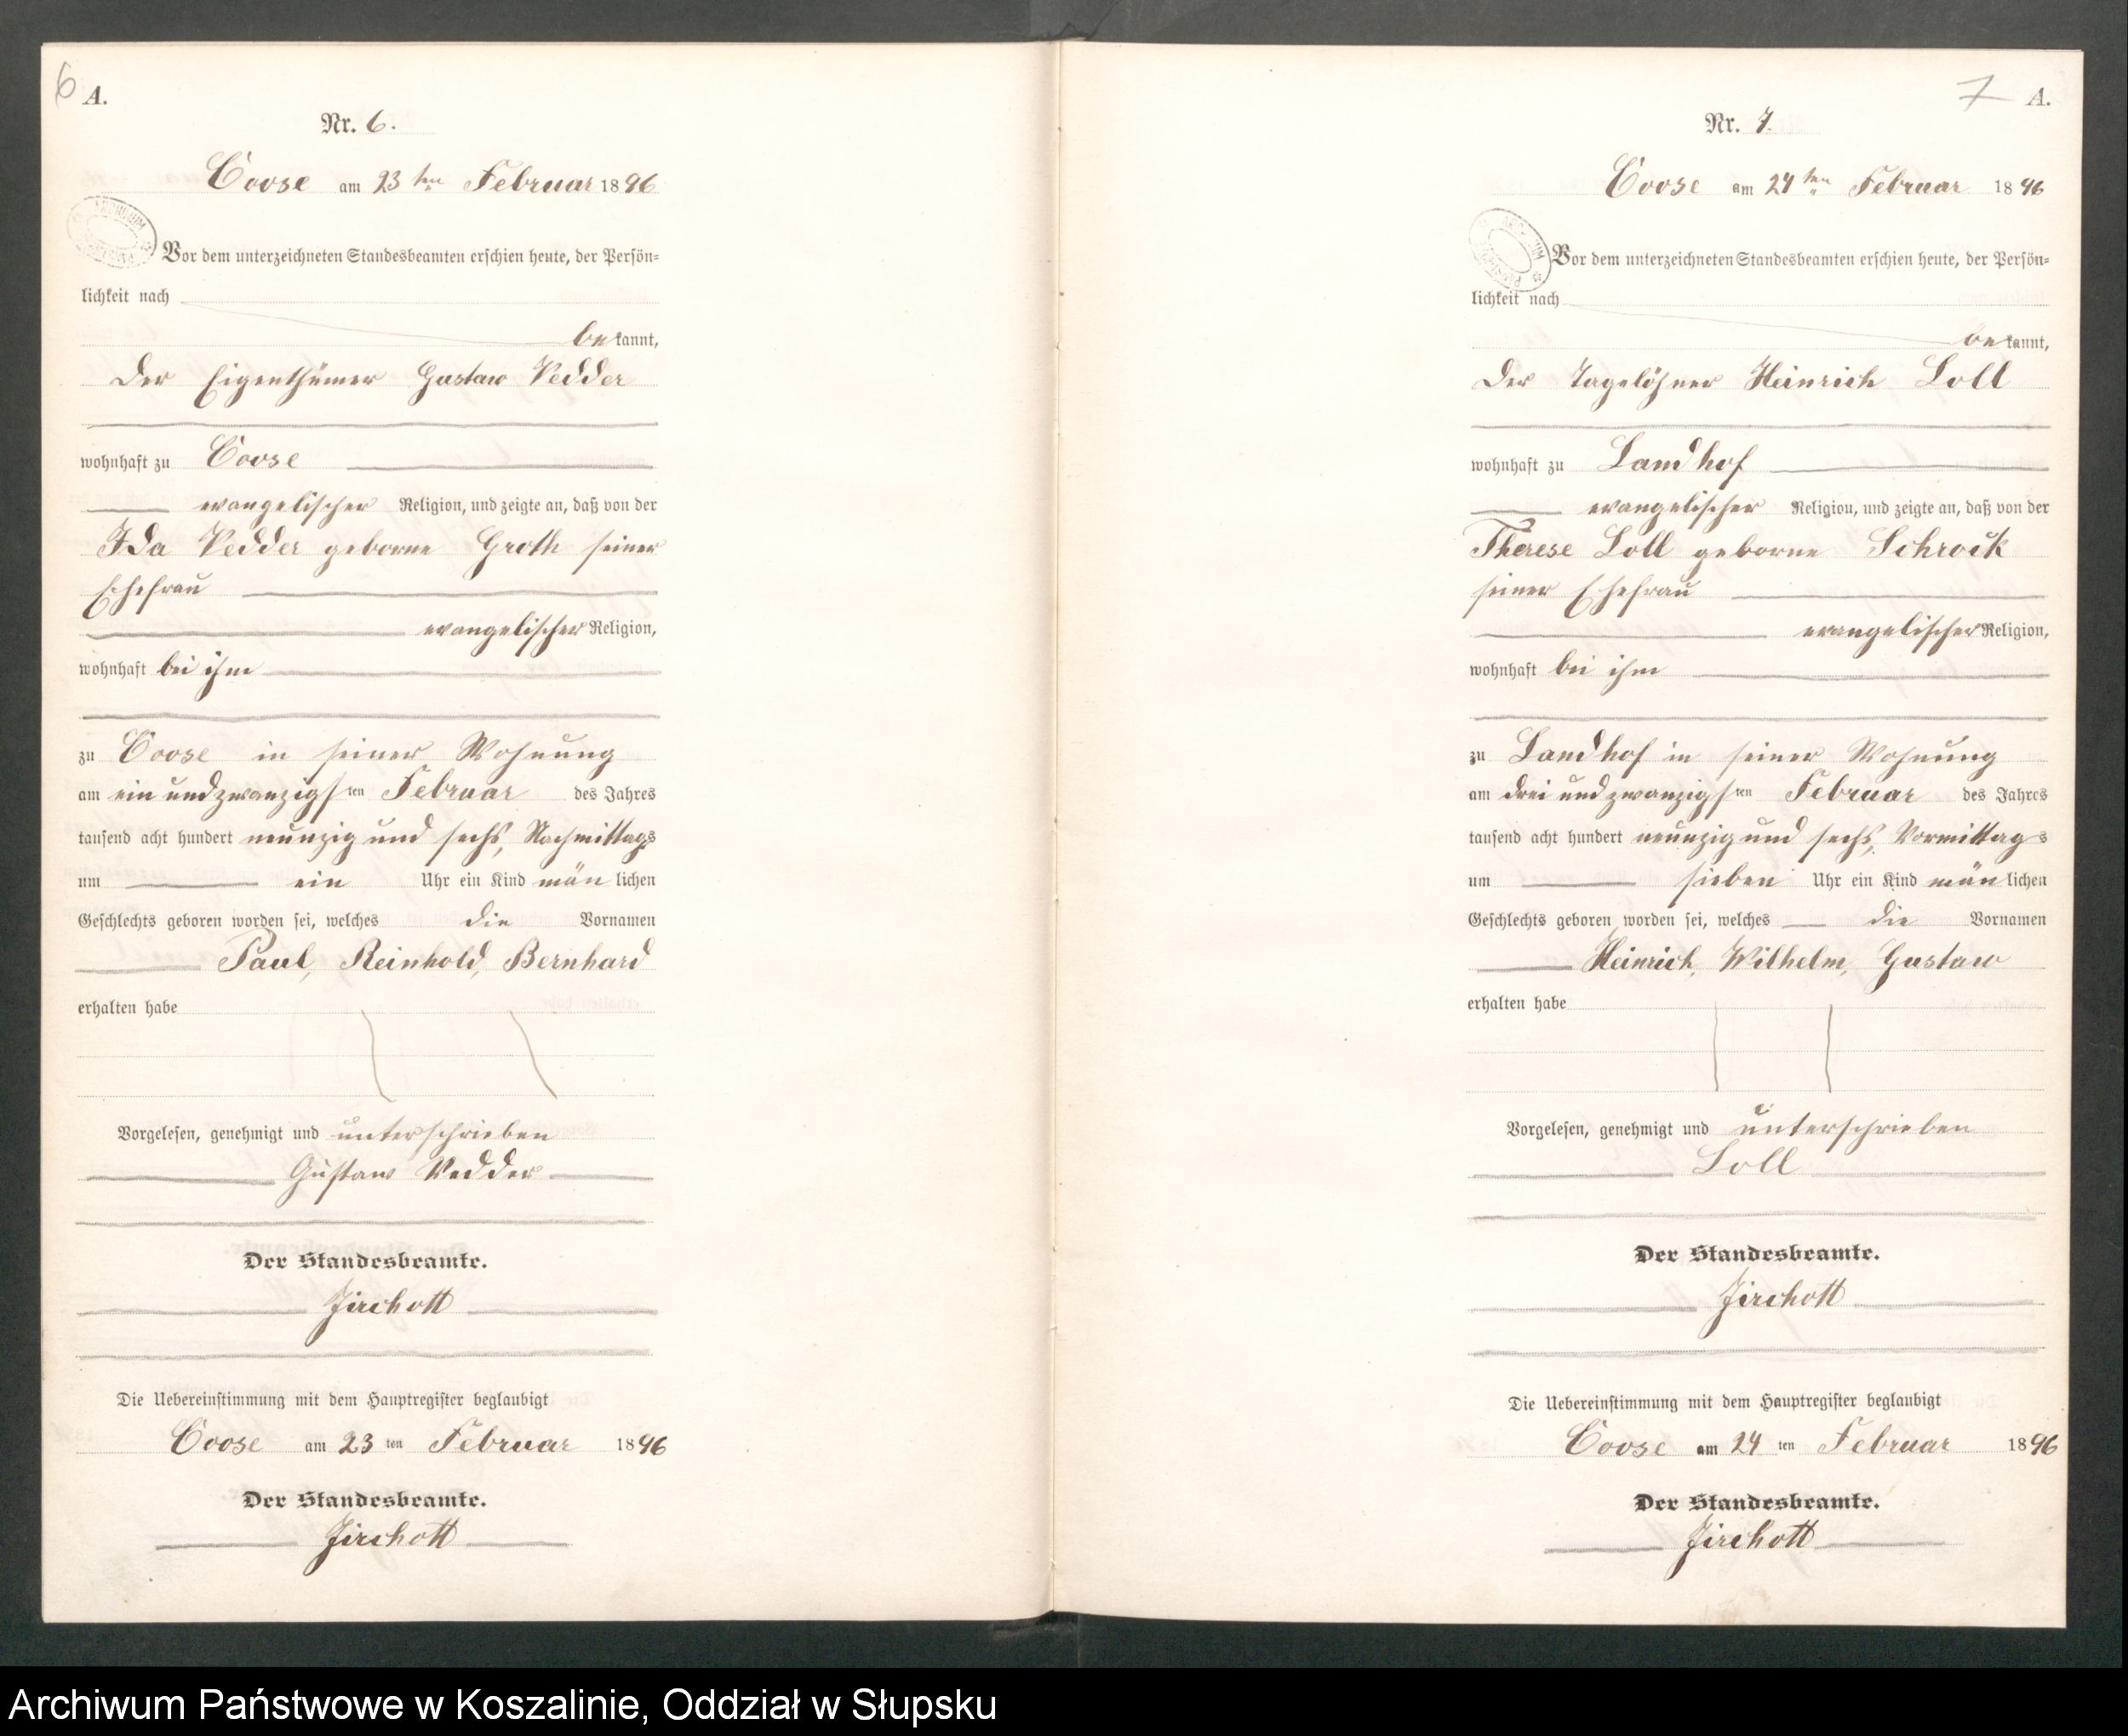 6
A.
Nr. 6.
Coose am 23 ten Februar 1896
Vor dem unterzeichneten Standesbeamten erschien heute, der Persön-
lichkeit nach
bekannt,
der Eigenthümer Gustaw Vedder
wohnhaft zu Coose
evangelischer Religion, und zeigte an, daß von der
Ida Vedder geborne Groth seiner
Ehefrau
evangelischer Religion,
wohnhaft bei ihm
zu Coose in seiner Wohnung
am ein und zwanzigsten Februar des Jahres
tausend acht hundert neunzig und sechs, Nachmittags
um ein Uhr ein Kind mänlichen
Geschlechts geboren worden sei, welches die Vornamen
Paul, Reinhold, Bernhard
erhalten habe
Vorgelesen, genehmigt und unterschrieben
Gustaw Vedder
Der Standesbeamte.
Jirchott
Die Uebereinstimmung mit dem Hauptregister beglaubigt
Coose am 23 ten Februar 1896
Der Standesbeamte.
Jirchott
7
A.
Nr. 7.
Coose am 24 ten Februar 1896
Vor dem unterzeichneten Standesbeamten erschien heute, der Persön-
lichkeit nach
bekannt,
der Tagelöhner Heinrich Loll
wohnhaft zu Landhof
evangelischer Religion, und zeigte an, daß von der
Therese Loll geborne Schrock
seiner Ehefrau
evangelischer Religion,
wohnhaft bei ihm
zu Landhof in seiner Wohnung
am drei und zwanzigsten Februar des Jahres
tausend acht hundert neunzig und sechs, Vormittags
um sieben Uhr ein Kind mänlichen
Geschlechts geboren worden sei, welches die Vornamen
Heinrich, Wilhelm, Gustaw
erhalten habe
Vorgelesen, genehmigt und unterschrieben
Loll
Der Standesbeamte.
Jirchott
Die Uebereinstimmung mit dem Hauptregister beglaubigt
Coose am 24 ten Februar 1896
Der Standesbeamte.
Jirchott
Archiwum Państwowe w Koszalinie, Oddział w Słupsku